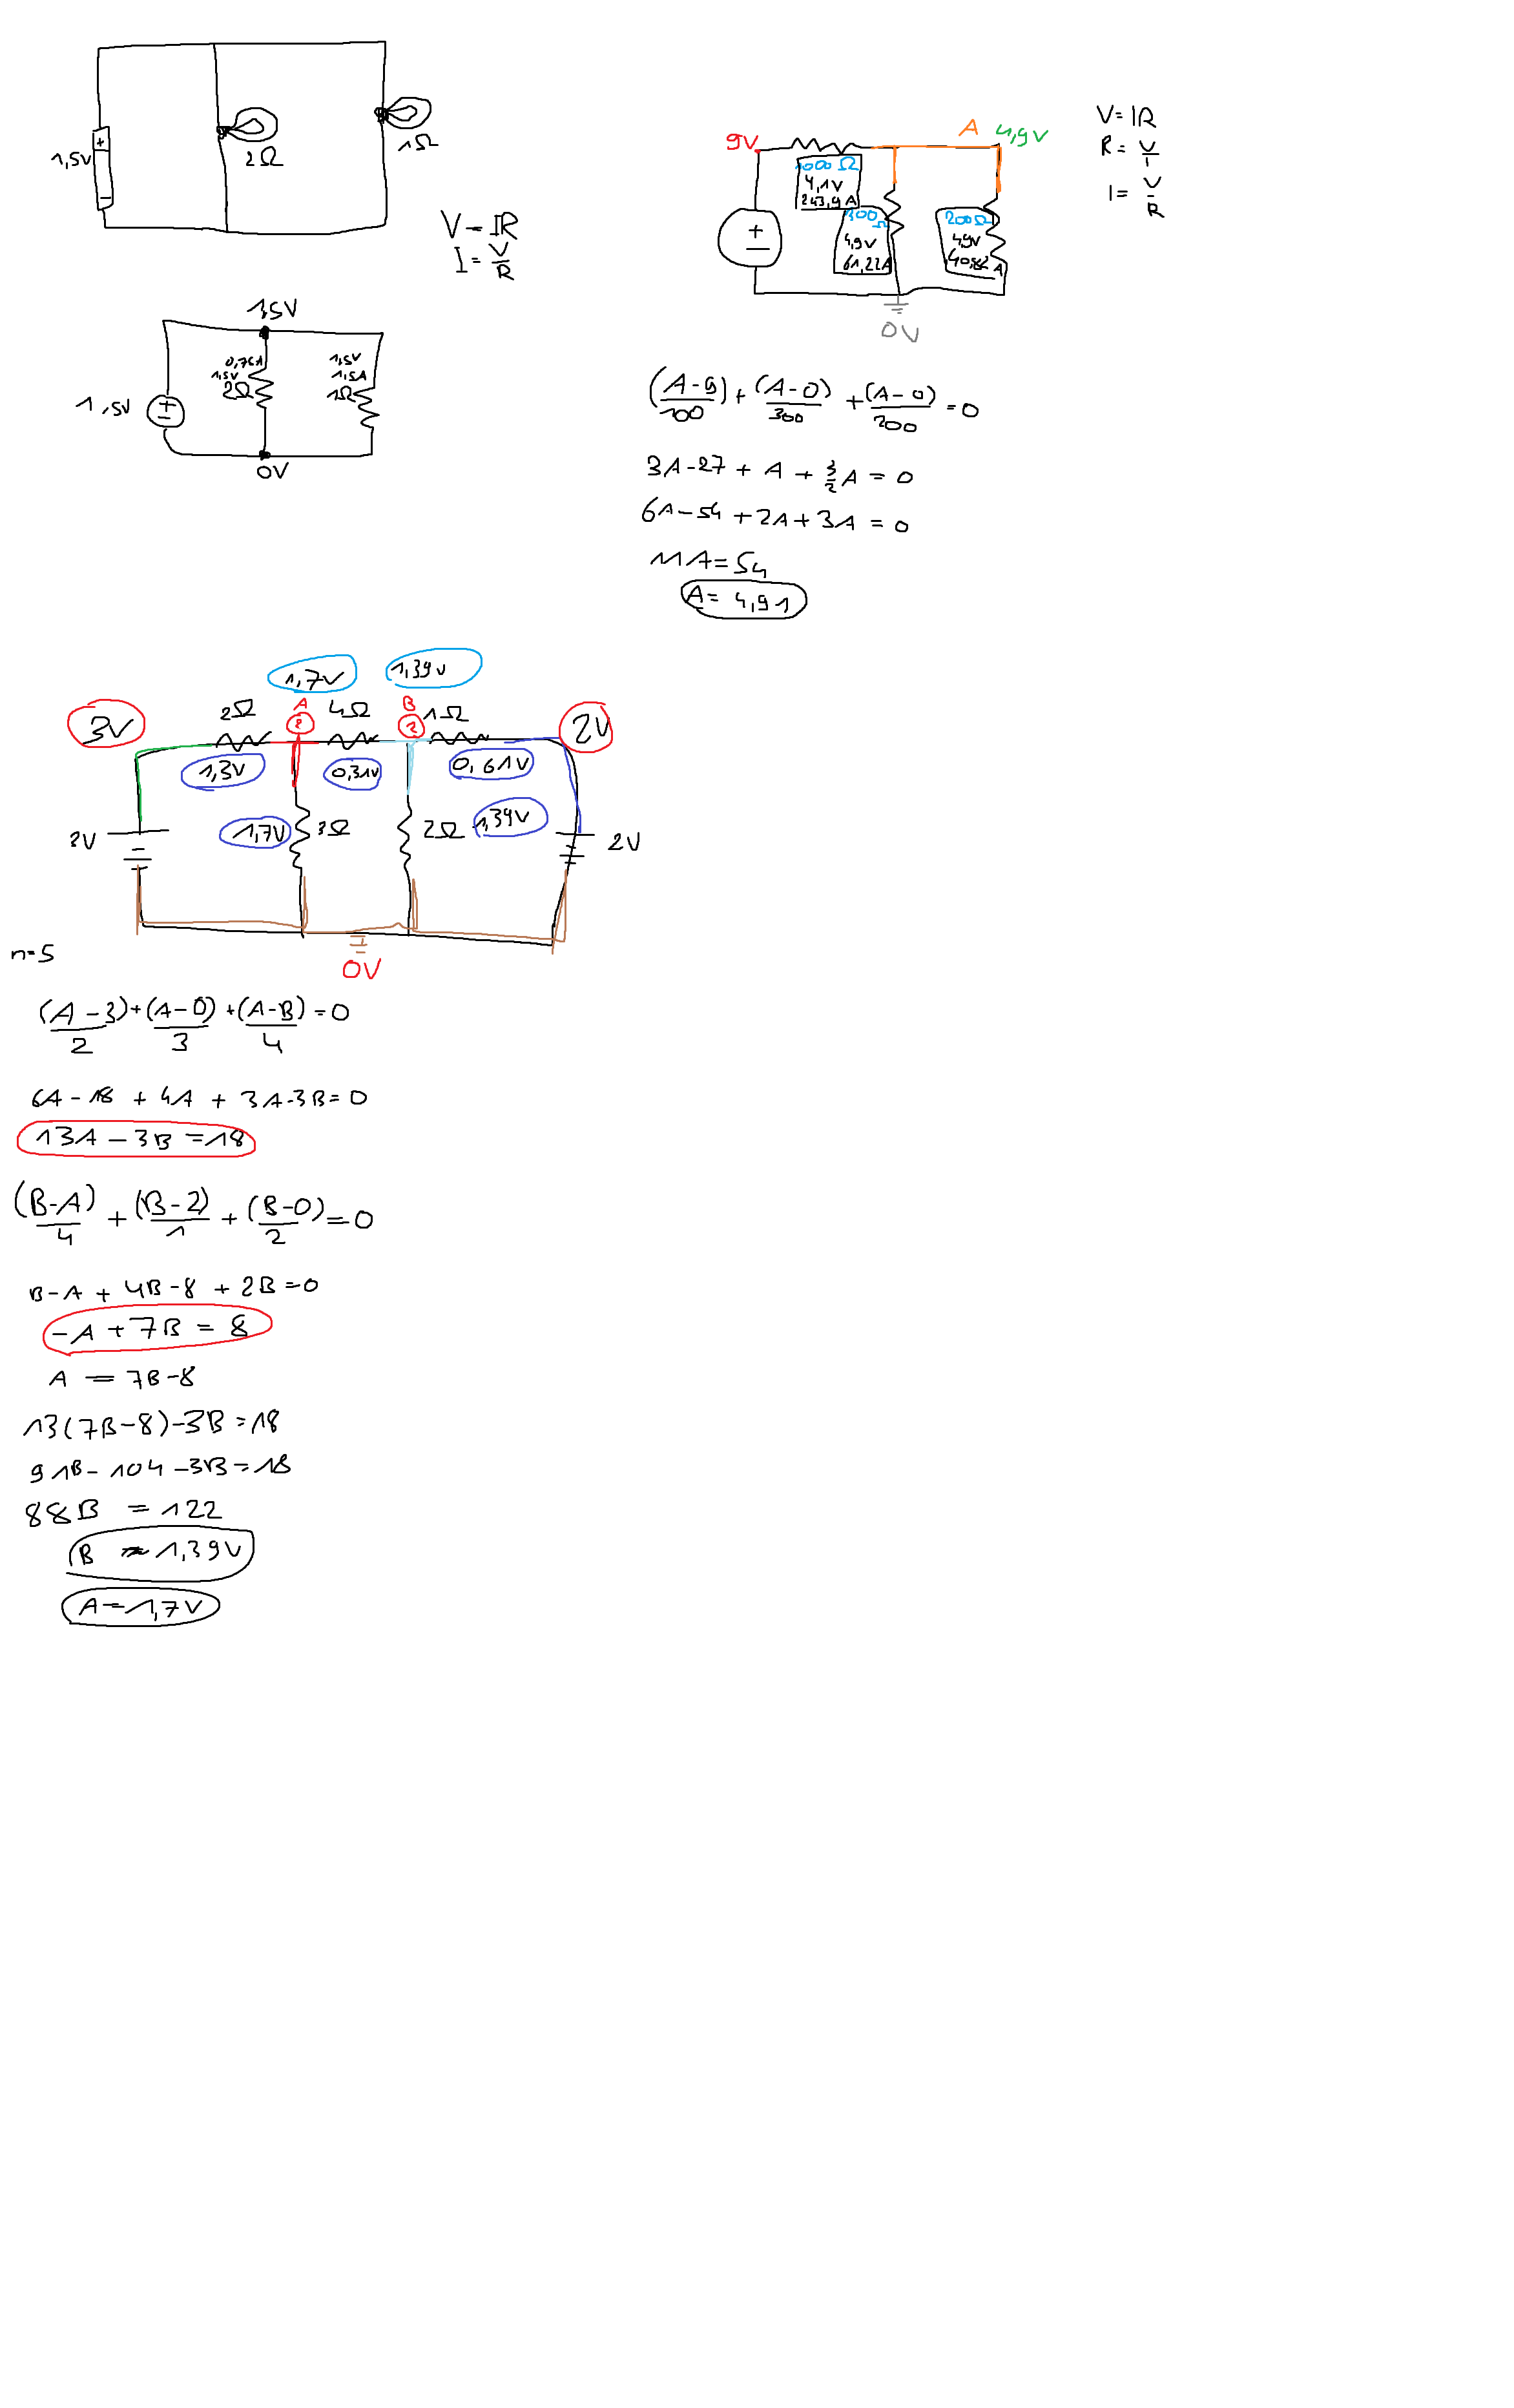 1,5V
+
-
2Ω
1Ω
V=IR
I=V/R
1,5V
0,75A
1,5V
2Ω
1,5V
1,5A
1Ω
1,5V
+
-
0V
9V
A 4,9V
1000Ω
4,1V
243,9A
300Ω
4,9V
61,22A
200Ω
4,9V
40,82A
+
-
0V
V=IR
R=V/I
I=V/R
(A-9)/100 + (A-0)/300 + (A-0)/200 = 0
3A-27 + A + 3/2A = 0
6A-54 + 2A + 3A = 0
11A=54
A= 4,91
1,7V
1,39V
3V
2Ω
A
2
4Ω
B
2
1Ω
2V
1,3V
0,31V
0,61V
3V
1,7V
3Ω
2Ω
1,39V
2V
0V
n=5
(A-3)/2 + (A-0)/3 + (A-B)/4 = 0
6A-18 + 4A + 3A-3B=0
13A-3B=18
(B-A)/4 + (B-2)/1 + (B-0)/2 = 0
B-A + 4B-8 + 2B=0
-A+7B = 8
A = 7B-8
13(7B-8)-3B=18
91B-104-3B=18
88B = 122
B ≈ 1,39V
A=1,7V